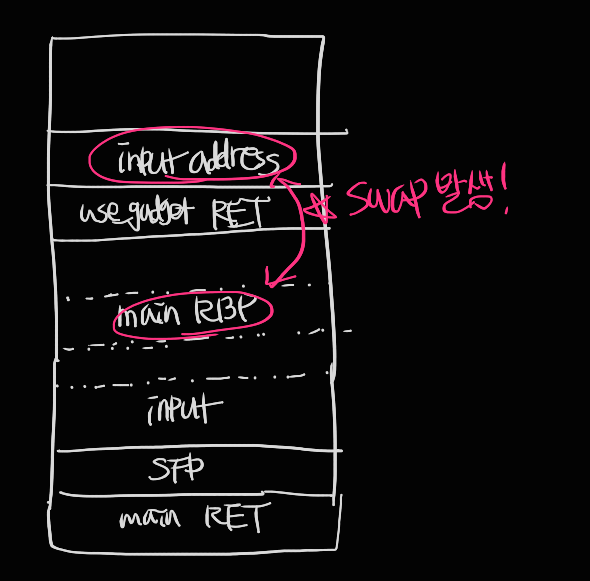 input address
use_gadget RET
☆ SWAP 발생!
main RBP
input
SFP
main RET